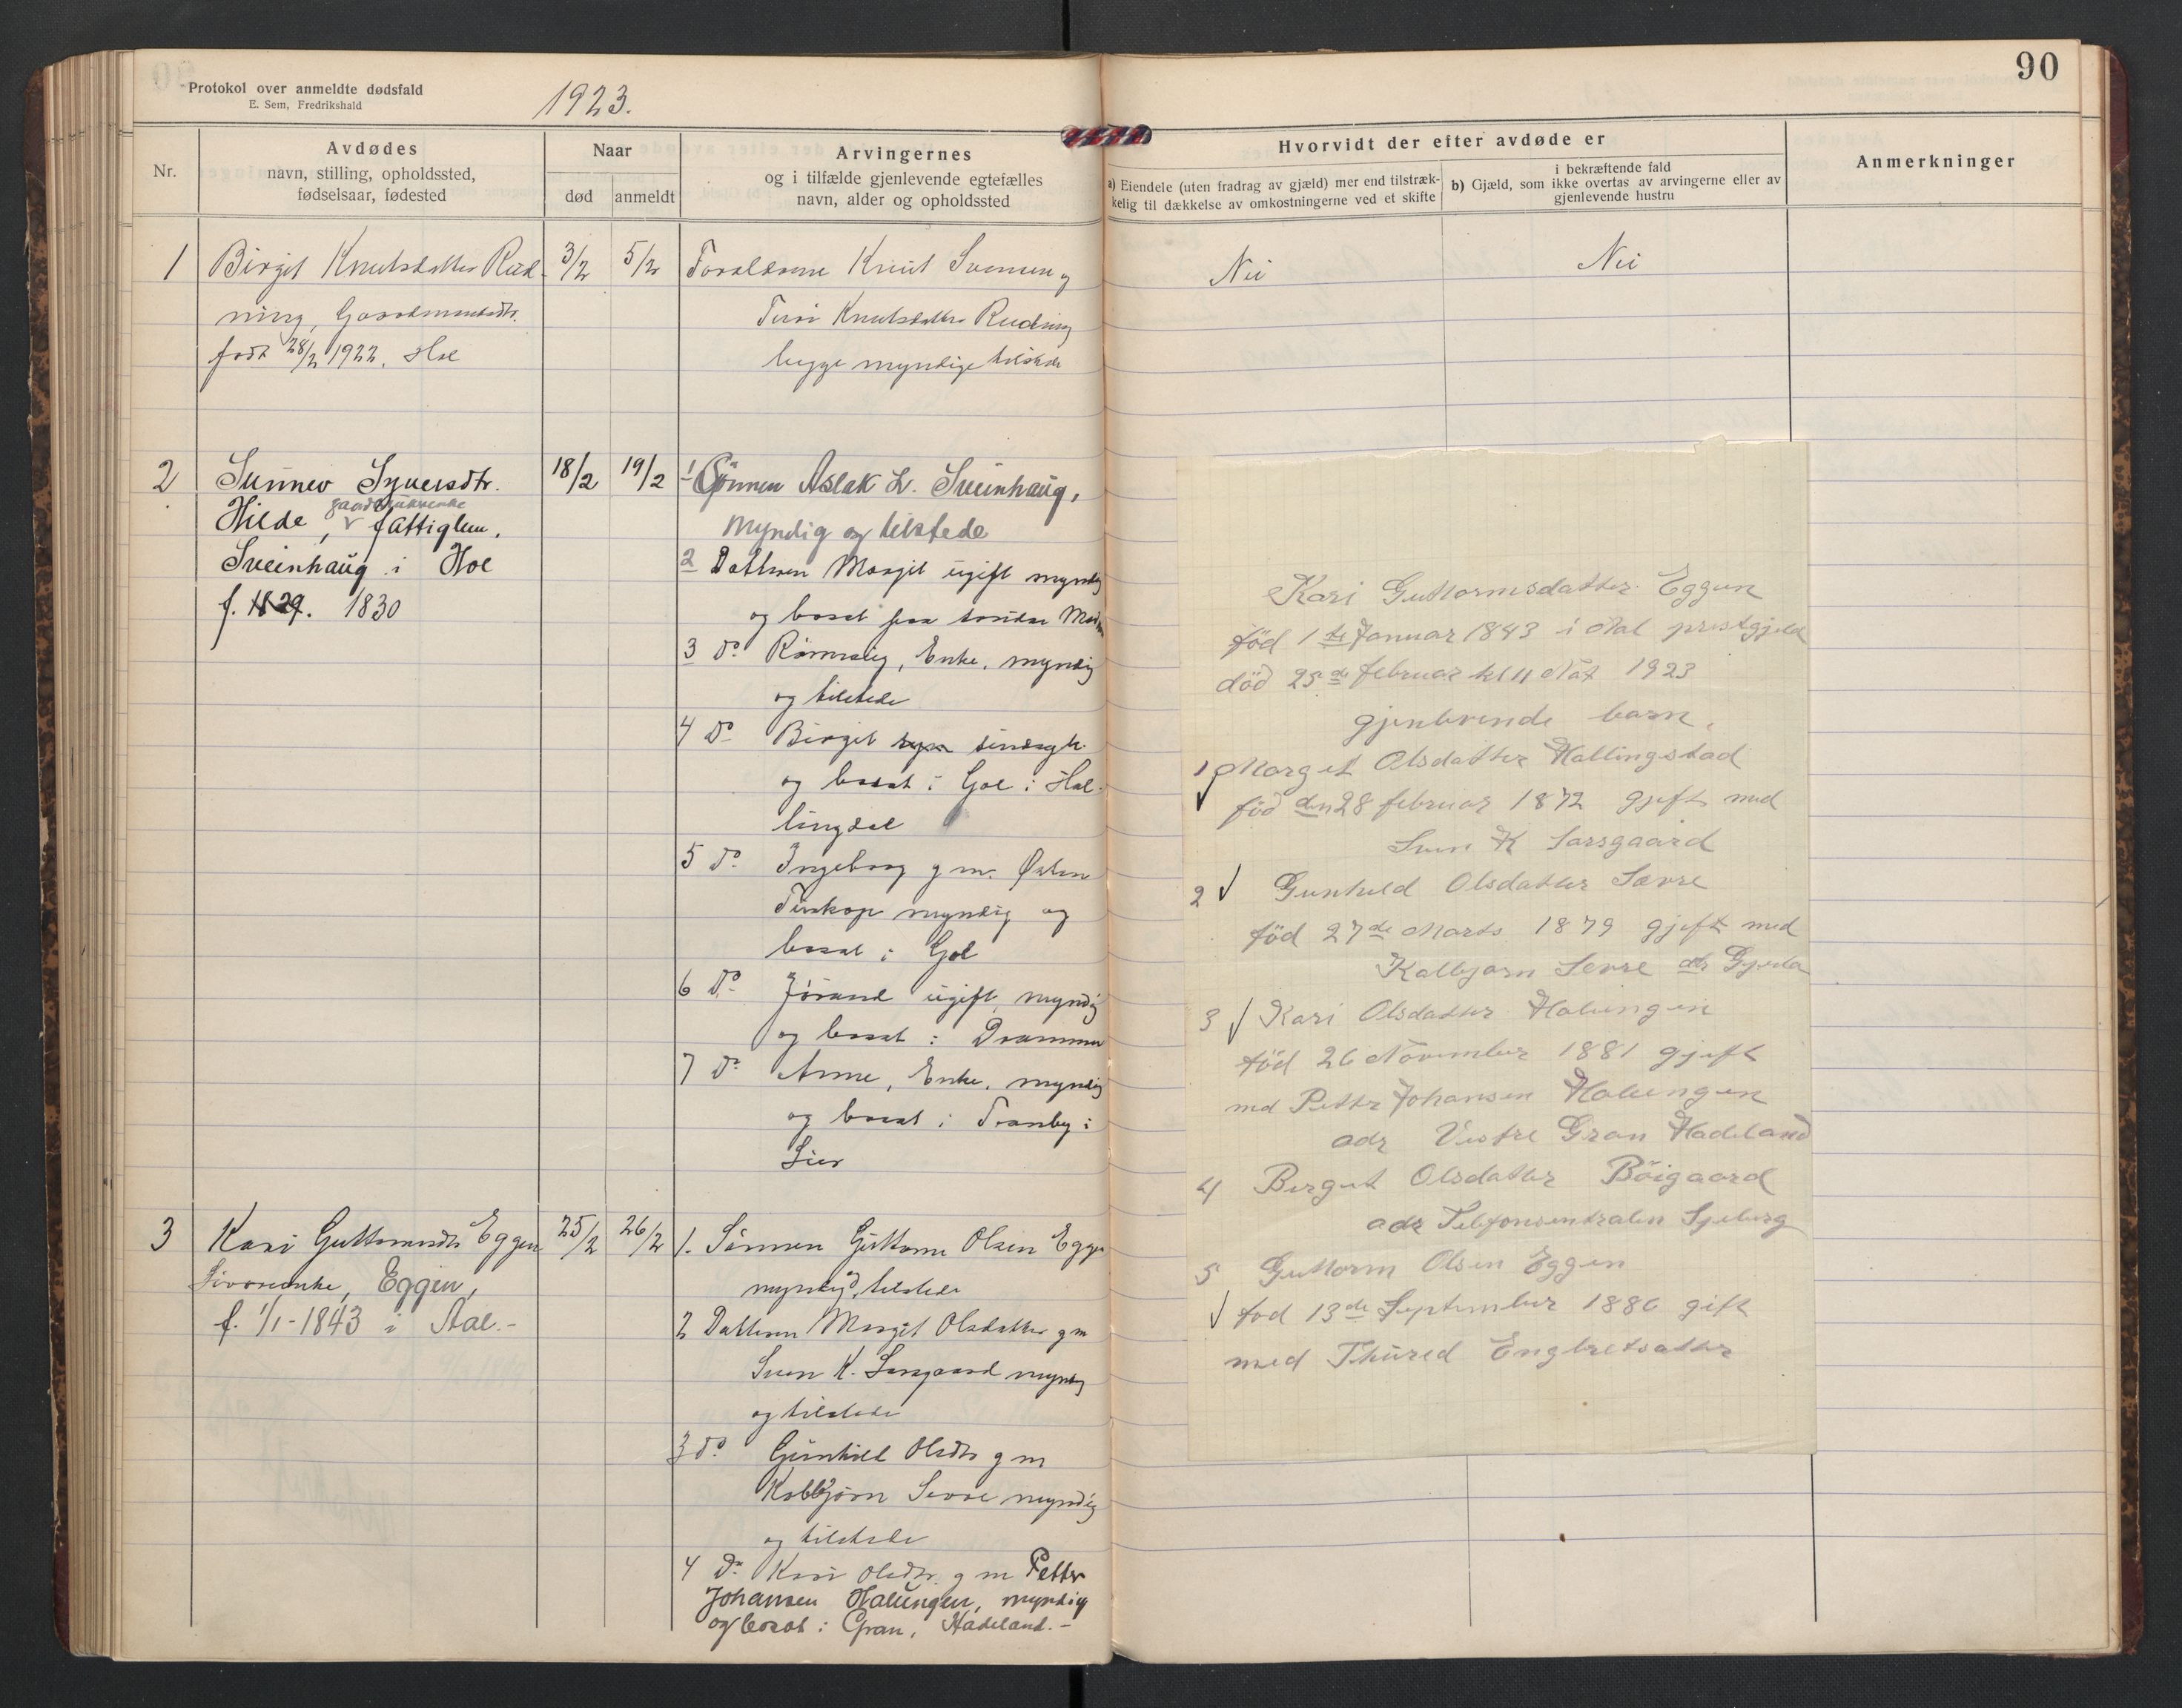 90
Protokol over anmeldte dødsfald
E. Sem, Fredrikshald
1923.
Nr.
Avdødes
navn, stilling, opholdssted,
fødselsaar, fødested
Naar
død
anmeldt
Arvingernes
og i tilfælde gjenlevende egtefælles
navn, alder og opholdssted
Hvorvidt der efter avdøde er
a) Eiendele (uten fradrag av gjæld) mer end tilstræk-
kelig til dækkelse av omkostningerne ved et skifte
i bekræftende fald
b) Gjæld, som ikke overtas av arvingerne eller av
gjenlevende hustru
Anmerkninger
1
Birgit Knutsdatter Rud-
ning,
født 28/2 1922. Hol
3/2
5/2
Forældrene Knut Svensen og
Turi Knutsdatter Rudning
begge myndige tilstede
Nei
Nei
2
Sunnev Syversdtr.
gaardbrukerenke
Hilde, v fattiglem.
Sveinhaug i Hol
f. 1829. 1830
18/2
19/2
1 Sønnen Aslak L. Sveinhaug,
Myndig og tilstede
2 Datteren Margit ugift myndig
og bosat paa
3 do Rønnaug, Enke, myndig
og tilstede
4 do Birgit sindssyk
og bosat i Gol i Hal-
lingdal
5 do Ingeborg g m.
Tuskop myndig og
bosat i Gol
6 do Jørand ugift, myndig
og bosat i Drammen
7 do Anne, Enke, myndig
og bosat i Tranby i
Lier
3
Kari Guttormsdtr Eggen
Livøreenke, Eggen,
f. 1/1-1843 i Aal.-
25/2
26/2
1. Sønnen Guttorm Olsen Eggen
myndig, tilstede
2 Datteren Margit Olsdatter g m
Sven K. Sarsgaard myndig
og tilstede
3 do Gunhild Olsdtr g m
Kolbjørn Sevre myndig
og tilstede
4 do Kari Olsdtr. g m Petter
Johansen Halungen, myndig
og bosat i Gran, Hadeland.-
Kari Guttormsdatter Eggen
föd 1ste Januar 1843 i Aal prestgjeld
död 25de februar kl 11 Nat 1923
gjenlevende barn.
1 Marget Olsdatter Hallingstad
föd den 28 februar 1872 gjeft med
Sven K Sarsgaard
2 Gunheld Olsdatter Sævre
föd 27de Marts 1879 gjeft med
Kolbjørn Sevre adr
3 Kari Olsdatter Halungen
föd 26 November 1881 gjeft
med Petter Johansen Halungen
adr Vestre Gran Hadeland
4 Bergit Olsdatter Böigaard
adr Telefonsentralen Sjeberg
5 Guttorm Olsen Eggen
föd 13de September 1886 gift
med Thured Engbretsatter